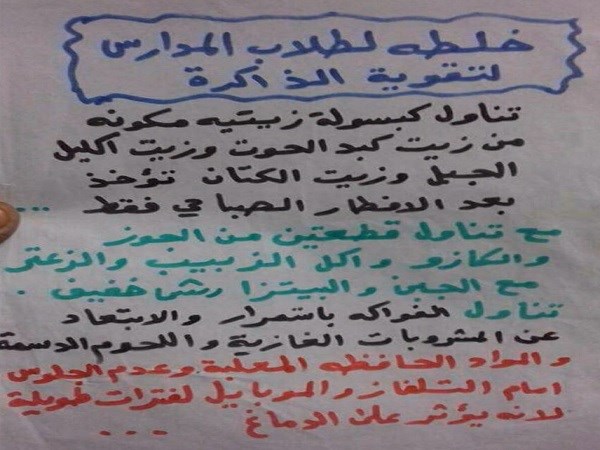 خلطه لطلاب المدارس
لتقوية الذاكرة
تناول كبسولة زيتيه مكونه
من زيت كبد الحوت وزيت اكليل
الجبل وزيت الكتان تؤخذ
بعد الافطار الصباحي فقط ...
مع تناول قطعتين من الجوز
والكازو واكل الزبيب والزعتر
مع الجبن والبيتزا رش خفيف .
تناول الفواكه باستمرار والابتعاد
عن المشروبات الغازية واللحوم الدسمة
والمواد الحافظه المعلبة وعدم الجلوس
امام التلفاز والموبايل لفترات طويلة
لانه يؤثر على الدماغ ...